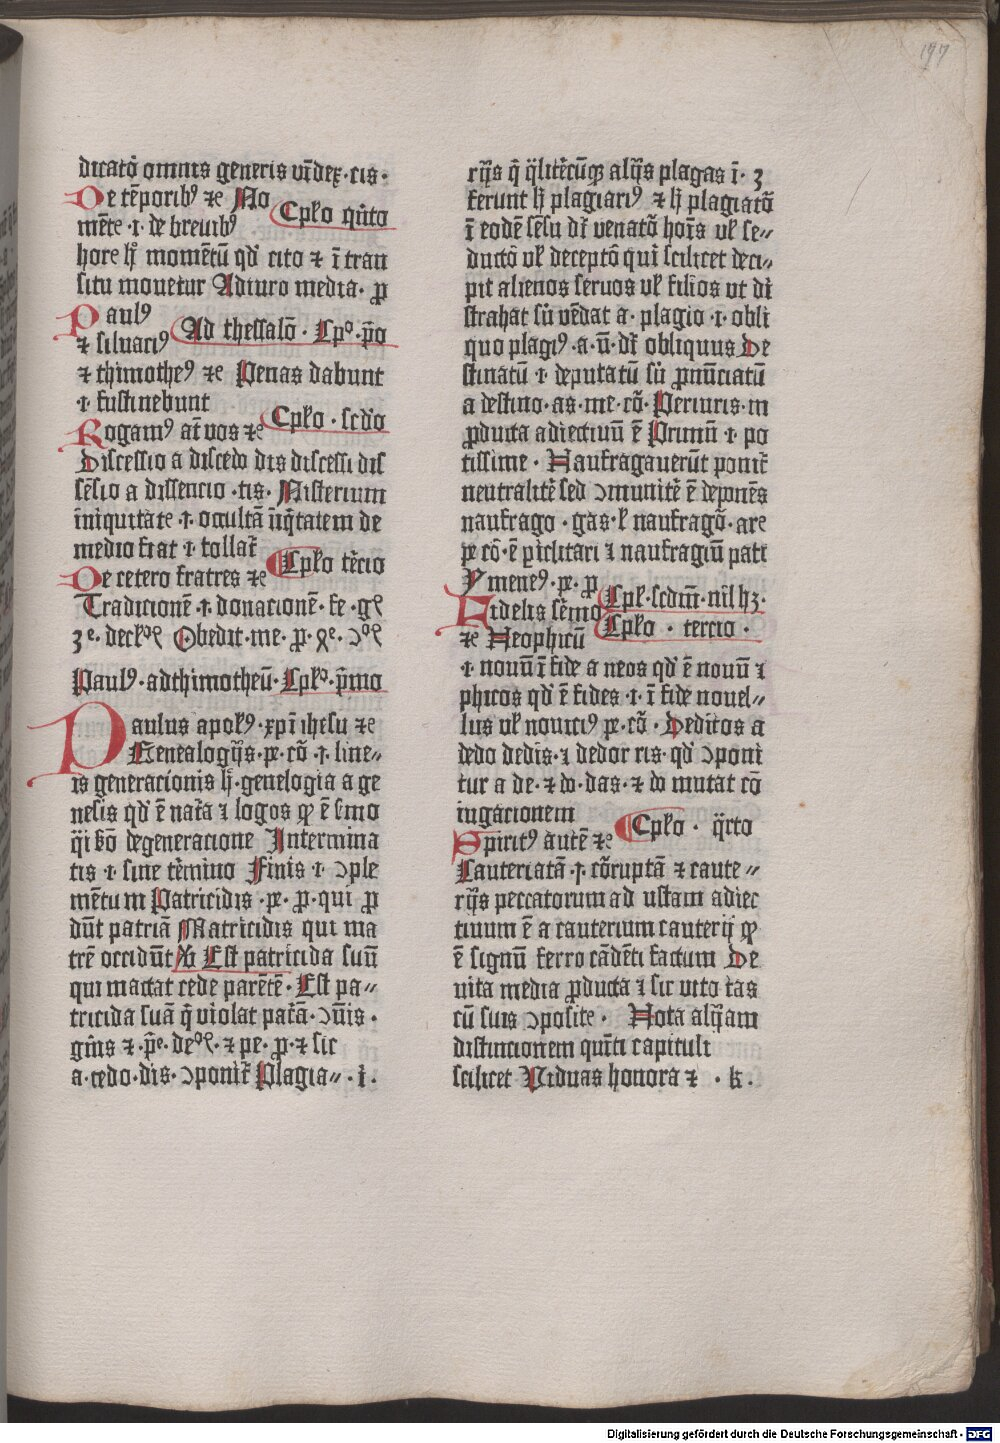 197
dicatõ omnis generis vĩdex · cis ·
De tẽporibꝰ ⁊c Mo
Cpło qnto
mẽte · i · de breuibꝰ
hore hͥ momẽtũ qd' cito ⁊ ĩ tran
situ mouetur Adiuro media · ꝓ
Paulꝰ
Ad thessalõ · Cpº · p̃o
⁊ siluaciꝰ
⁊ thimotheꝰ ⁊c Penas dabunt
· i · sustinebunt
Cpło · scdo
Rogamꝰ at̃ vos ⁊c
Discessio a discedo dis discessi dis
sẽsio a dissencio · tis · Misterium
iniquitate · i · occultã iiq̃tatem de
medio fiat · i · tollat̃
Cpło tẽcio
De cetero fratres ⁊c
Tradicionẽ · i · donacionẽ · fe · gꝭ
Obedit · me · ꝓ ·
Paulꝰ · ad thimotheũ · Cplº · p̃mo
Paulus apołꝰ · xpĩ ihesu ⁊c
Genealogijs · pe · cõ · i · line⸗
is generacionis hͥ · genelogia a ge
nesis qd' ẽ nat̃a ⁊ logos qd' ẽ s̃mo
q̃i s̃o de generacione Intermina
tis · i · sine tẽmino Finis · i · ɔple
mẽtum Patricidis · pe · ꝓ · qui ꝑ
dũt patriã Matricidis qui ma
trẽ occidũt Vꝰ Est patricida suũ
qui mactat cede parẽtẽ · Est pa⸗
tricida suã q̃ violat pat̃ã · ɔũis ·
gñis ⁊ · p̃e · ⁊ pe · ꝓ · ⁊ sic
a · cedo · dis · ɔponit̃ Plagia⸗ · i ·
rijs q̃ q̃litẽcũqꝫ alijs plagas ĩ · ꝫ
ferunt hͥ plagiariꝰ ⁊ hͥ plagiatõ
ĩ eodẽ sẽsu dr̃ venatõ hoĩs vł se⸗
ductõ vł deceptõ qui scilicet deci⸗
pit alienos seruos vł filios vt di
strahat sũ vẽdat a · plagio · i · obli
quo plagiꝰ · a · ũ · dr̃ obliquus De
stinatũ · i · deputatũ sũ ꝓnũciatũ
a destino · as · me · cõ · Periuris · m
ꝓducta adiectiuũ ẽ Primũ · i · po
tissime · Naufragauerũt ponit̃
neutralitẽ sed ɔmunitẽ ẽ deponẽs
naufrago · gas · ł naufragõ · are
pe cõ · ẽ ꝑiclitari ⁊ naufragiũ pati
Ymeneꝰ · pe · ꝓ
Cpł · scdm · nil hꝫ ·
Fidelis sẽmo
Cpło · tercio ·
⁊c Neophicũ
· i · nouũ ĩ fide a neos qd' ẽ nouũ ⁊
phicos qd' ẽ fides · i · ĩ fide nouel⸗
lus vł nouiciꝰ pe · cõ · Deditos a
dedo dedis · ⁊ dedor ris · qd' ɔponi
tur a de · ⁊ do · das · ⁊ do mutat cõ
iugacionem
Cpło · q̃rto
Spiritꝰ autẽ ⁊c
Cauteriatã · i · cõruptã ⁊ caute⸗
rijs peccatorum ad vstam adiec
tiuum ẽ a cauterium cauterij qd'
ẽ signũ ferro cãdẽti factum De
uita media ꝓducta ⁊ sic vito tas
cũ suis ɔposite · Nota aliq̃am
distinctionem quĩti capituli
scilicet Viduas honora ⁊ · k ·
Digitalisierung gefördert durch die Deutsche Forschungsgemeinschaft - DFG